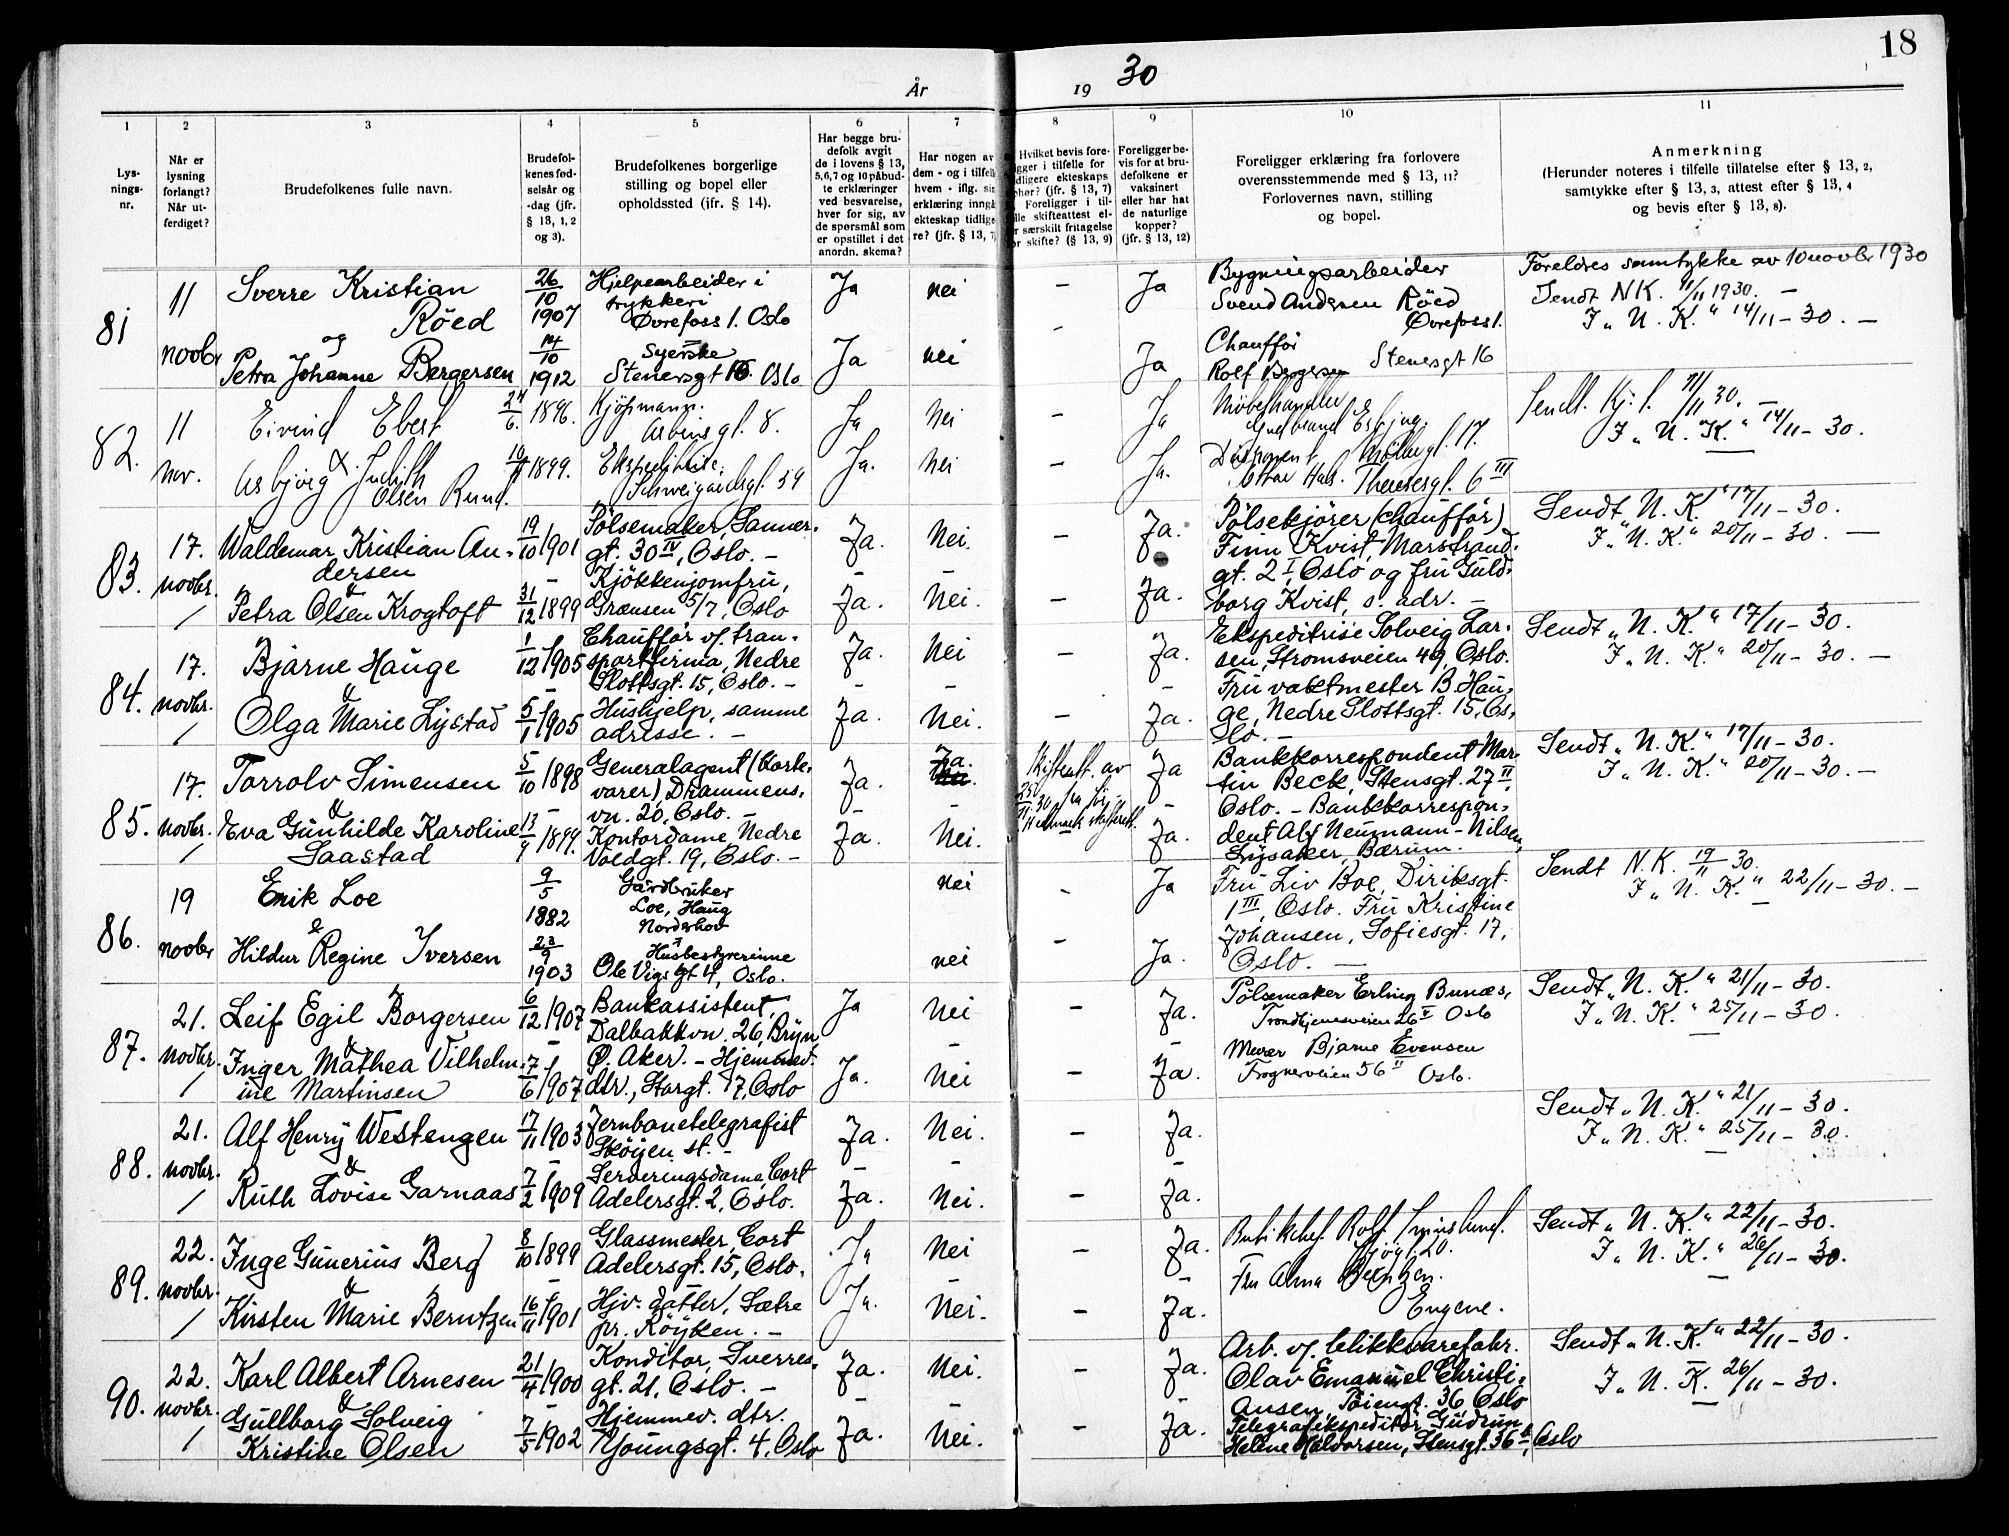 18
År 19 30
1 2 3 4 5 6 7 8 9 10 11
Lysningsnr.
Når er lysning forlangt? Når utferdiget?
Brudefolkenes fulle navn.
Brudefolkenes fødselsår og -dag (jfr. § 13, 1, 2 og 3).
Brudefolkenes borgerlige stilling og bopel eller opholdssted (jfr. § 14).
Har begge brudefolk avgit de i lovens § 13, 5,6,7 og 10 påbudte erklæringer ved besvarelse, hver for sig, av de spørsmål som er opstillet i det anordn. skema?
Har nogen av dem - og i tilfelle hvem - iflg. sin erklæring inngå ekteskap tidligere? (jfr. § 13, 7
Hvilket bevis foreligger i tilfelle for
dligere ekteskaps
pher? (jfr. § 13, 7)
Foreligger i til-
lle skifteattest el-
r særskilt fritagelse
or skifte? (§ 13, 9)
Foreligger bevis for at brudefolkene er vaksinert eller har hat de naturlige kopper? (jfr. § 13, 12)
Foreligger erklæring fra forlovere overensstemmende med § 13, 11? Forlovernes navn, stilling og bopel.
Anmerkning
(Herunder noteres i tilfelle tillatelse efter § 13, 2, samtykke efter § 13, 3, attest efter § 13, 4 og bevis efter § 13, 8).
81 11 novbr
Sverre Kristian Röed
26/10 1907
Hjelpearbeider i trykkeri
Øvrefoss 1. Oslo
Ja nei - Ja
Bygningsarbeider
Svend Andersen Röed
Øvrefoss 1.
Foreldres samtykke av 10 novbr 1930
Sendt N.K. 11/11 1930. -
F „ N. K. “ 14/11 - 30. -
og
Petra Johanne Bergersen
14/10 1912
Syerske
Stenersgt 16. Oslo
Ja nei - Ja
Chaufför
Rolf Bergersen Stenersgt 16
82. 11 nov.
Eivind Ebert
24/6 1896.
Kjöpmann.
gt. 8.
Ja Nei - Ja
Möbelhandler
Sendt. Kj. f. 11/11 30. -
F „ N. K. “ 14/11 - 30.
&
Asbjörg Judith Olsen Rund.
1899.
Ekspeditrise.
Schweigaardsgt. 59
Ja. Nei - Ja.
Disponent
Theresesgt. 6 III
83. 17. novbr.
Waldemar Kristian Andersen
19/10 1901
Pölsemaker, Sannergt. 30 IV, Oslo. -
Ja. Nei. Ja.
Pölsekjörer (chauffør)
Finn Kvist, Marstrandgt. 2 I, Oslo og fru Guldborg Kvist, s. adr. -
Sendt N. K. “ 17/11 - 30.
F „ N. K. “ 20/11 - 30. -
&
Petra Olsen Krogtoft
31/12 1899
Kjökkenjomfru,
Grænsen 5/7, Oslo
Ja. Nei. - Ja.
84. 17. novbr.
Bjarne Hauge
1/12 1905
Chauffør v/ transportfirma, Nedre Slottsgt. 15, Oslo. -
Ja. Nei - Ja.
Ekspeditrise Solveig Larsen, Strømsveien 49, Oslo.
Fru vaktmester B. Hauge, Nedre Slottsgt. 15, Oslo. -
Sendt „ N. K. “ 17/11 - 30.
F „ N. K. “ 20/11 - 30. -
&
Olga Marie Lystad
5/1 1905
Hushjelp, samme adresse. -
Ja. Nei. - Ja.
85. 17. novbr.
Torrolv Simensen
5/10 1898
Generalagent (kortevarer), Drammensvn. 20, Oslo. -
Ja. Ja.
Skifteatt. av
Ja
Bankkorrespondent Martin Beck, Stensgt. 27 II, Oslo. - Bankkorrespondent Alf Neumann-Nilsen, Lysaker, Bærum.
Sendt „ N. K. “ 17/11 - 30.
F „ N. K. “ 20/11 - 30. -
&
Eva Gunhilde Karoline Saastad
1899.
Kontordame, Nedre Voldgt. 19, Oslo. -
Ja. Nei. Ja.
86. 19 novbr
Erik Loe
9/5 1882
Gårdbruker
Loe, Haug
Norderhov
nei - Ja
Fru Liv Boe, Diriksgt. 1 III, Oslo. Fru Kristine Johansen, Sofiesgt. 17, Oslo. -
Sendt N.K. 19/11 30.
F „ N. K. “ 22/11 - 30. -
&
Hildur Regine Iversen
23/9 1903
Husbestyrerinne
Ole Vigs gt 4, Oslo.
nei - Ja.
87. 21. novbr.
Leif Egil Borgersen
6/12 1907
Bankassistent,
Dalbakkvn. 26, Bryn, Ø. Aker. -
Ja Nei - Ja.
Pölsemaker Erling Bunæs,
Trondhjemsveien 26 V Oslo
Sendt „ N. K. “ 21/11 - 30.
F „ N. K. “ 25/11 - 30.
&
Inger Mathea Vilhelmine Martinsen
7/6 1907
Hjemmev. dtr., Storgt. 17, Oslo
Ja. Nei - Ja.
Murer Bjarne Evensen
Frognerveien 56 II Oslo.
88. 21. novbr.
Alf Henry Westengen
17/11 1903
Jernbanetelegrafist
Sköyen st. -
Ja. Nei. - Ja.
Sendt „ N. K. “ 21/11 - 30.
F „ N. K. “ 25/11 - 30.
&
Ruth Lovise Garnaas
7/2 1909
Serveringsdame, Cort Adelersgt. 2, Oslo.
Ja. Nei. - Ja.
89. 22. novbr.
Inge Gunerius Berg
8/10 1899
Glassmester Cort Adelersgt. 15, Oslo.
Ja Nei - Ja.
Butikchef Rolf
Sendt „ N. K. “ 22/11 - 30.
F „ N. K. “ 26/11 - 30.
&
Kirsten Marie Berntzen
16/11 1901
Hjv. datter, Sætre pr. Röyken. -
Ja. Nei. - Ja.
Fru Alma Berntzen.
Engene.
90. 22. novbr.
Karl Albert Arnesen
21/4 1900
Konditor, Sverresgt. 21, Oslo. -
Ja. Nei. - Ja.
Arb. v/ blikkvarefabr.
Olav Emanuel Christiansen, Töiengt. 36 Oslo
Sendt „ N. K. “ 22/11 - 30.
F „ N. K. 26/11 - 30.
&
Gullborg Solveig Kristine Olsen
7/5 1902
Hjemmev. dtr.
Youngsgt. 4, Oslo
Ja. Nei. - Ja.
Telegrafekspeditör Gudrun Helene Halvorsen, Stensgt. 36 II, Oslo